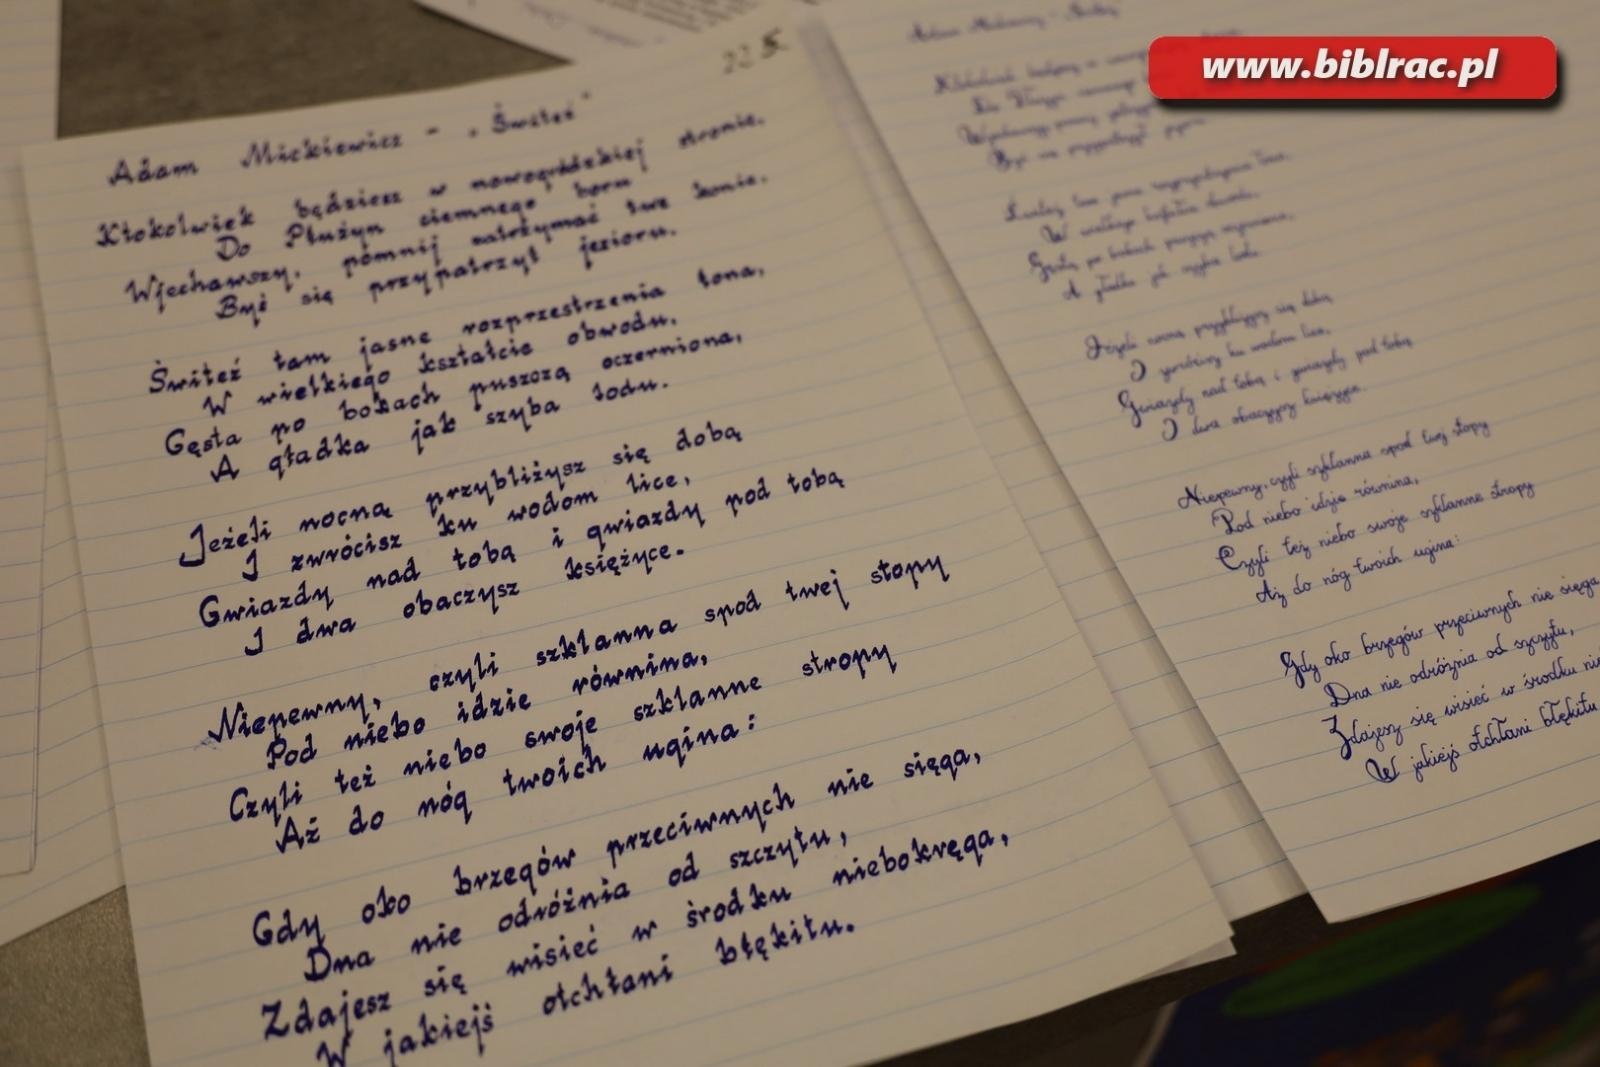 www.biblrac.pl
225
Adam Mickiewicz - „Świteź"
Ktokolwiek będziesz w nowogródzkiej stronie,
Do Płużyn ciemnego boru
Wjechawszy, pomnij zatrzymać twe konie,
Byś się przypatrzył jezioru.
Świteź tam jasne rozprzestrzenia łona,
W wielkiego kształcie obwodu,
Gęstą po bokach puszczą oczerniona,
A gładka jak szyba lodu.
Jeżeli nocną przybliżysz się dobą
I zwrócisz ku wodom lice,
Gwiazdy nad tobą i gwiazdy pod tobą
I dwa obaczysz księżyce.
Niepewny, czyli szklanna spod twej stopy
Pod niebo idzie równina,
Czyli też niebo swoje szklanne stropy
Aż do nóg twoich ugina:
Gdy oko brzegów przeciwnych nie sięga,
Dna nie odróżnia od szczytu,
Zdajesz się wisieć w środku niebokręga,
W jakiejś otchłani błękitu.
Jeżeli nocną przybliżysz się dobą
I zwrócisz ku wodom lice,
Gwiazdy nad tobą i gwiazdy pod tobą
I dwa obaczysz księżyce.
Niepewny, czyli szklanna spod twej stopy
Pod niebo idzie równina,
Czyli też niebo swoje szklanne stropy
Aż do nóg twoich ugina:
Gdy oko brzegów przeciwnych nie sięga
Dna nie odróżnia od szczytu,
Zdajesz się wisieć w środku
W jakiejś otchłani błękitu